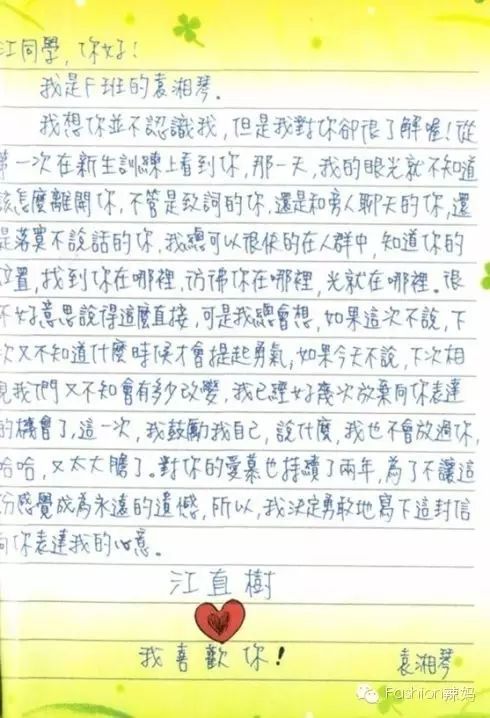 江同學，你好！
我是F班的袁湘琴。
我想你並不認識我，但是我對你卻很了解喔！從
第一次在新生訓練上看到你，那一天，我的眼光就不知道
該怎麼離開你，不管是致詞的你，還是和旁人聊天的你，還
是落寞不說話的你，我總可以很快的在人群中，知道你的
位置，找到你在哪裡，彷彿你在哪裡，光就在哪裡。很
不好意思說得這麼直接，可是我總會想，如果這次不說，下
次又不知道什麼時候才會提起勇氣，如果今天不說，下次相
見我們又不知會有多少改變，我已經好幾次放棄向你表達
的機會了，這一次，我鼓勵我自己，說什麼，我也不會放過你，
哈哈，又太大膽了。對你的愛慕也持續了兩年，為了不讓這
份感覺成為永遠的遺憾，所以，我決定勇敢地寫下這封信
向你表達我的心意。
江直樹
我喜歡你！ 袁湘琴
Fashion辣妈